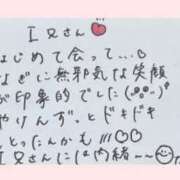 I兄さん
はじめて会って…♡
なぎに無邪気な笑顔
が印象的でした(◦˙-˙◦)"
やりんず、とドキドキ
とったんかも!!!♡♡
I兄さんには内緒〜〜☺